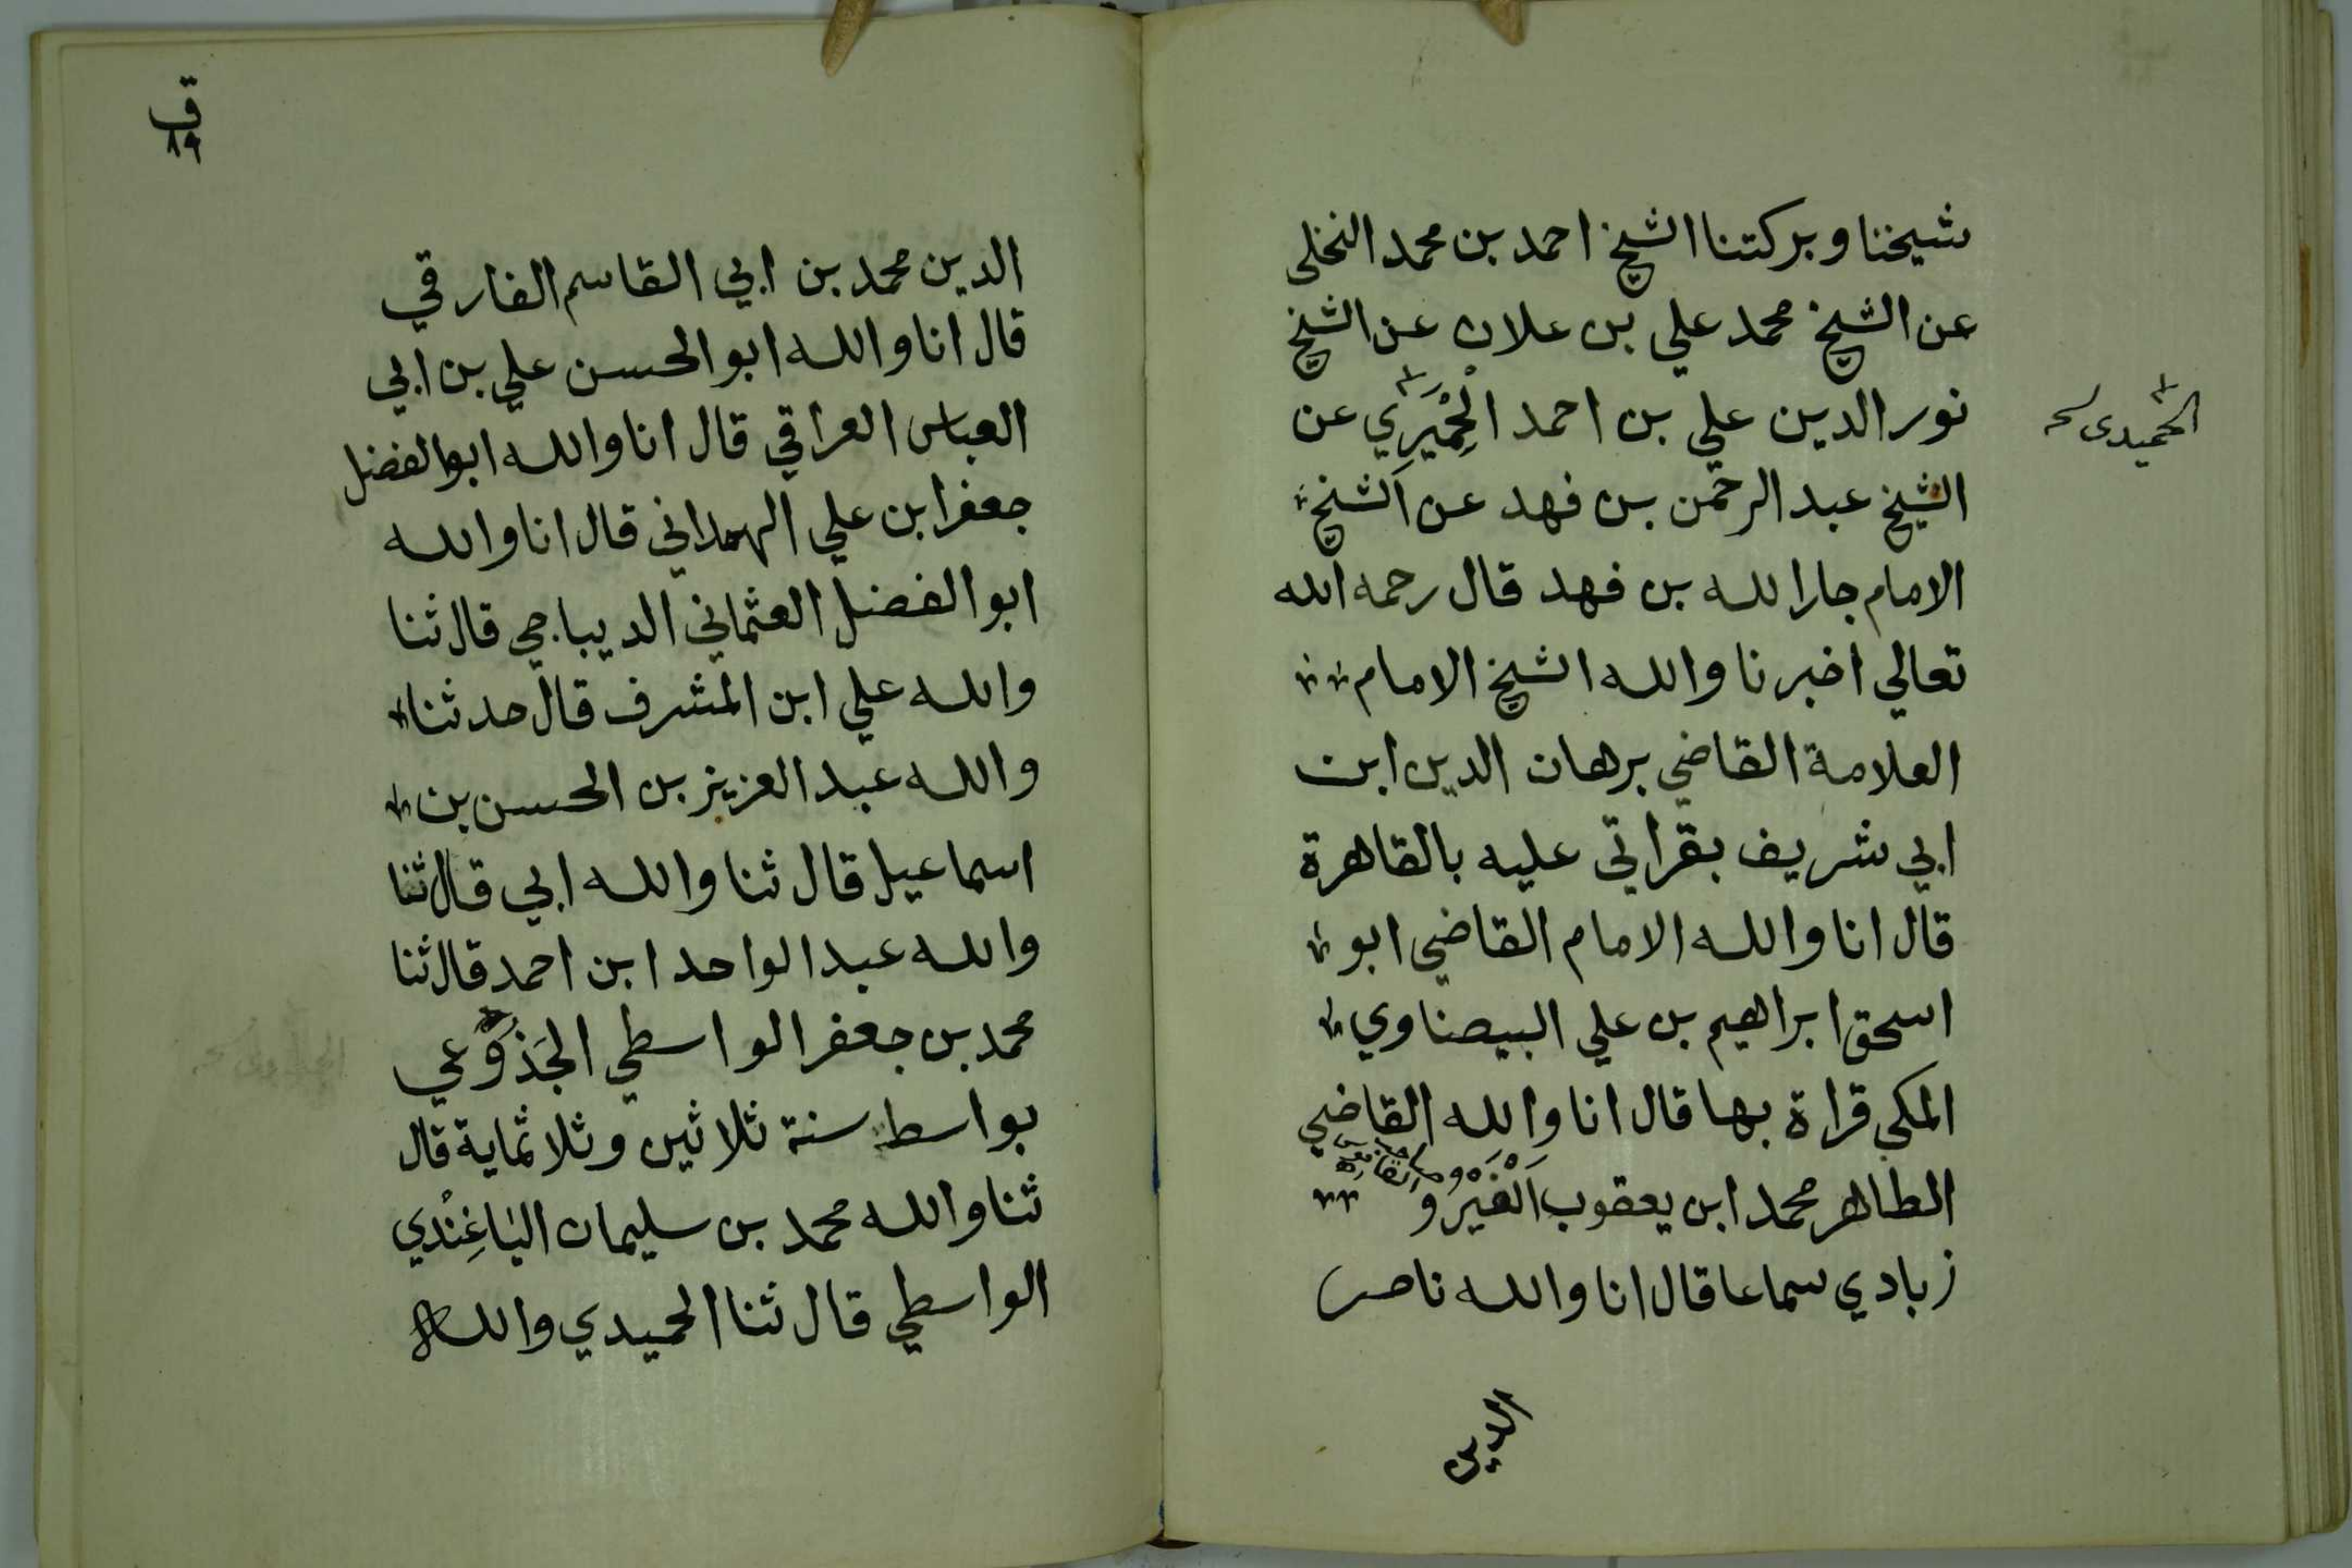 شيخنا وبركتنا الشيخ احمد بن محمد النخلي
عن الشيخ محمد علي بن علان عن الشيخ
نور الدين علي بن احمد الْحِمْيَرِي عن
الحميدى
الشيخ عبد الرحمن بن فهد عن الشيخ
الامام جار الله بن فهد قال رحمه الله
تعالي اخبرنا والله الشيخ الامام
العلامة القاضي برهان الدين ابن
ابي شريف بقراتي عليه بالقاهرة
قال انا والله الامام القاضي ابو
اسحق ابراهيم بن علي البيضاوي
المكي قراة بها قال انا والله القاضي
الطاهر محمد ابن يعقوب الفَيْرُو
زبادي سماعا قال انا والله ناصر
الدين
ق
٨٩
الدين محمد بن ابي القاسم الفارقي
قال انا والله ابو الحسن علي بن ابي
العباس العراقي قال انا والله ابو الفضل
جعفر ابن علي الهمداني قال انا والله
ابو الفضل العثماني الديباجي قال ثنا
والله علي ابن المشرف قال حدثنا
والله عبد العزيز بن الحسن بن
اسماعيل قال ثنا والله ابي قال ثنا
والله عبد الواحد ابن احمد قال ثنا
محمد بن جعفر الواسطي الجَذُوعي
بواسط سنة ثلاثين وثلاثماية قال
ثنا والله محمد بن سليمان الباغِنْدي
الواسطي قال ثنا الحميدي والله